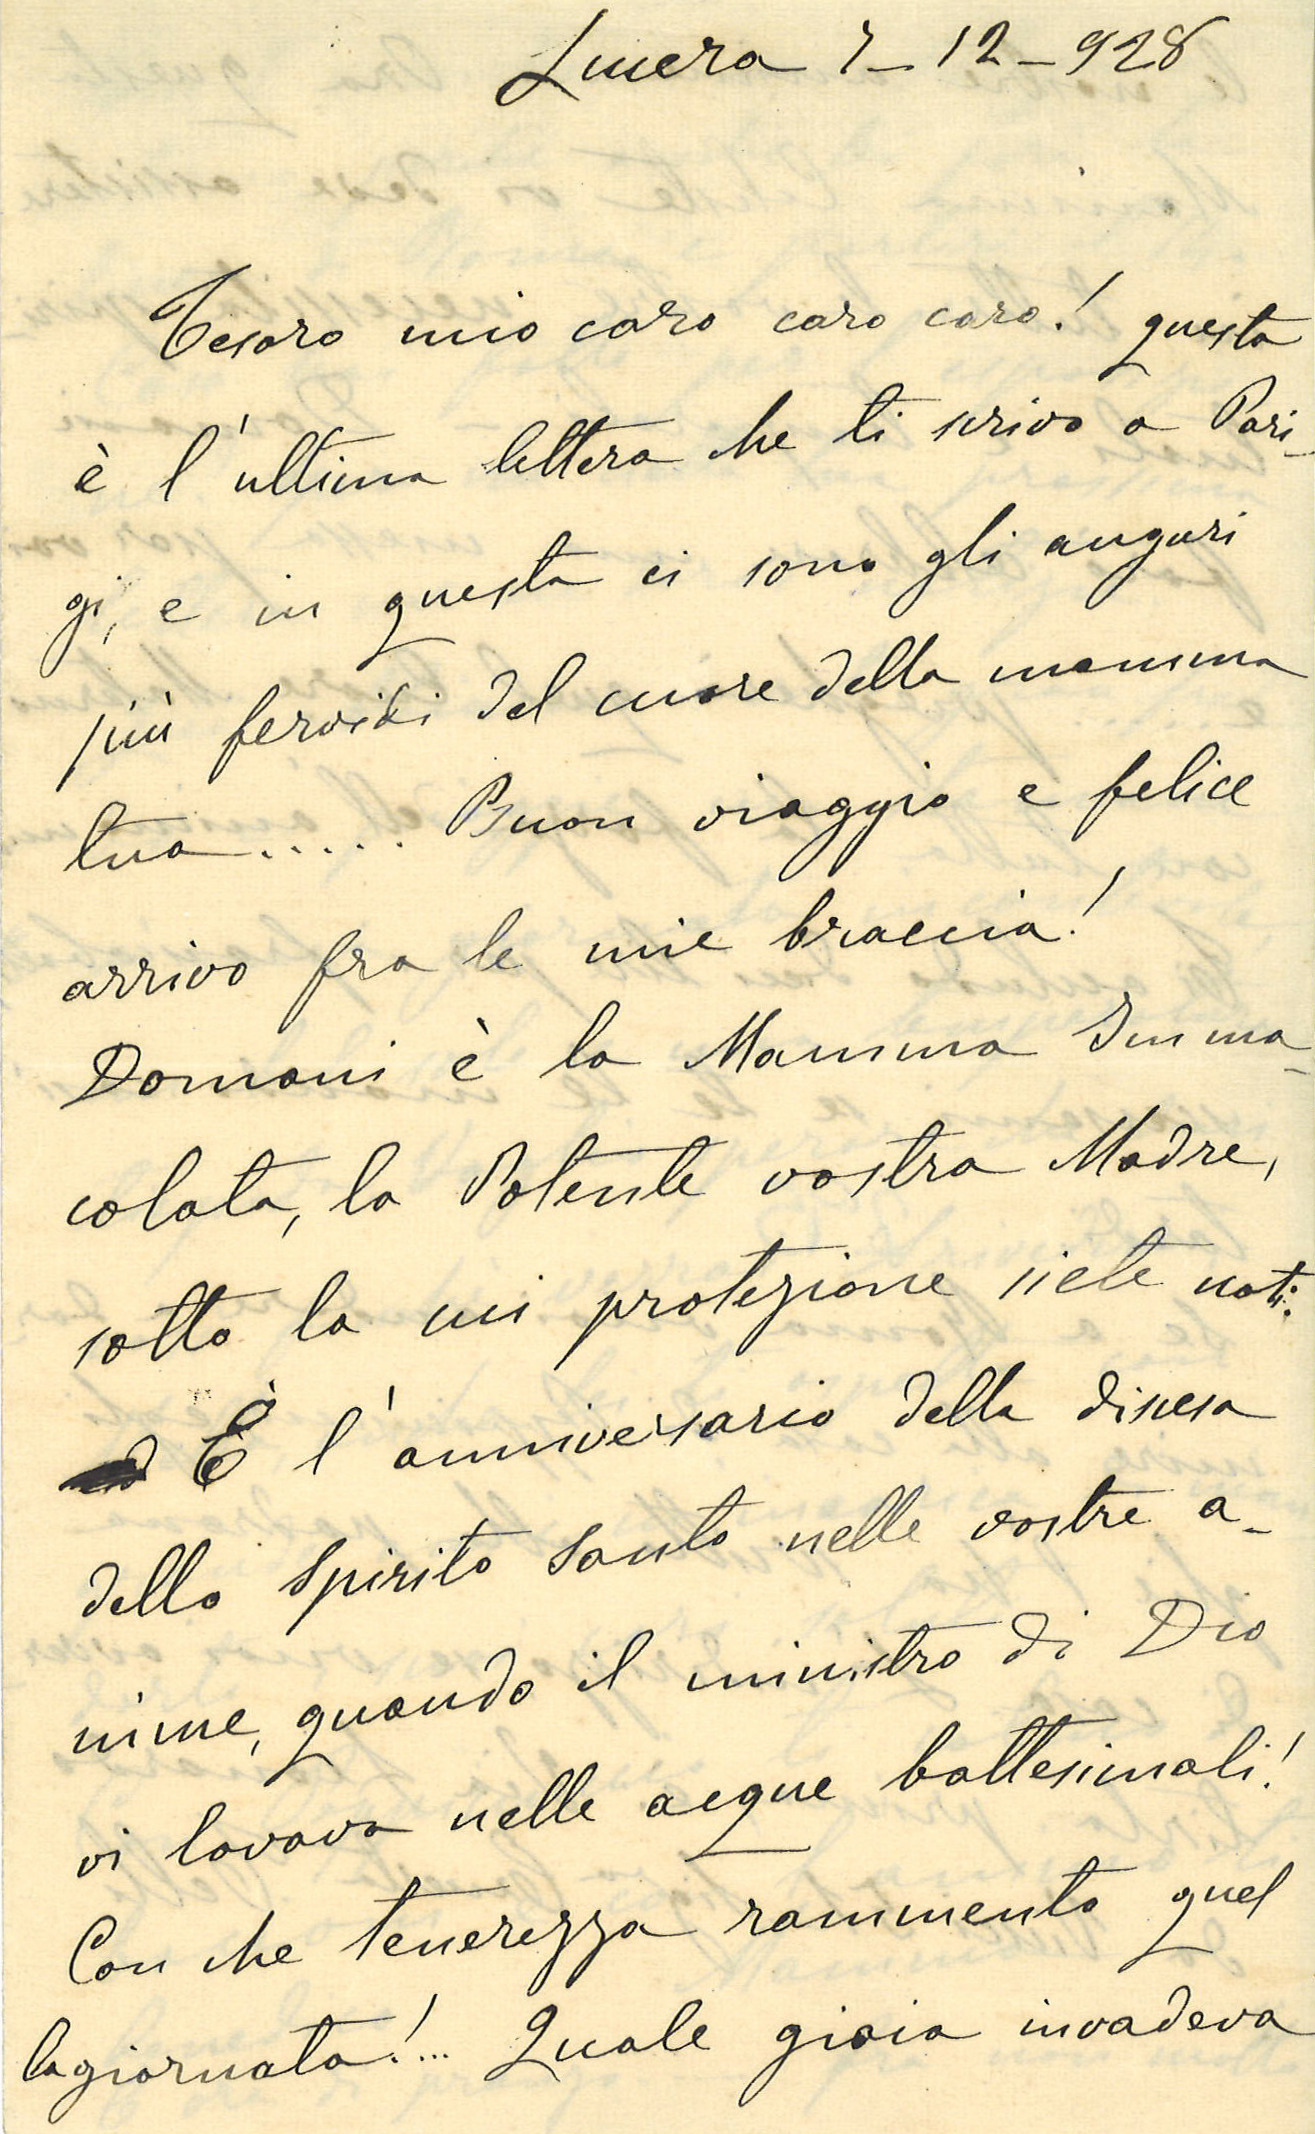 Lucera 7-12-928
Tesoro mio caro caro caro! questa
è l'ultima lettera che ti scrivo a Pari-
gi, e in questa ci sono gli auguri
più fervidi del cuore della mamma
tua...... Buon viaggio e felice
arrivo fra le mie braccia!
Domani è la Mamma Imma-
colata, la Potente vostra Madre,
sotto la cui protezione siete nati.
È l'anniversario della discesa
dello Spirito Santo nelle vostre a-
nime, quando il ministro di Dio
vi lavava nelle acque battesimali!
Con che tenerezza rammento quel
la giornata!... Quale gioia invadeva